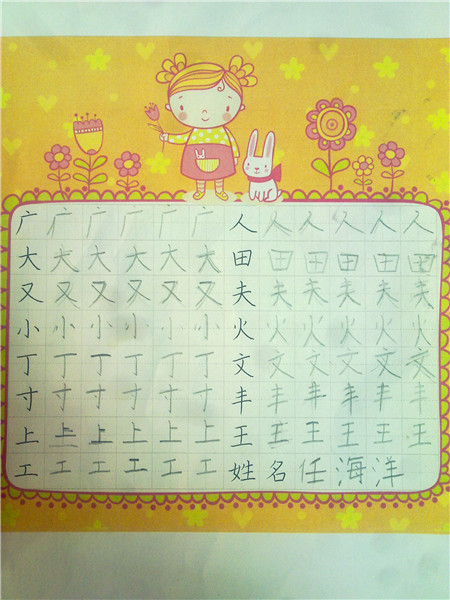 广广广广广广人人人人人人
大大大大大大田田田田田田
又又又又又又夫夫夫夫夫夫
小小小小小小火火火火火火
丁丁丁丁丁丁文文文文文文
寸寸寸寸寸寸丰丰丰丰丰丰
上上上上上上王王王王王王
工工工工工工姓名任海洋